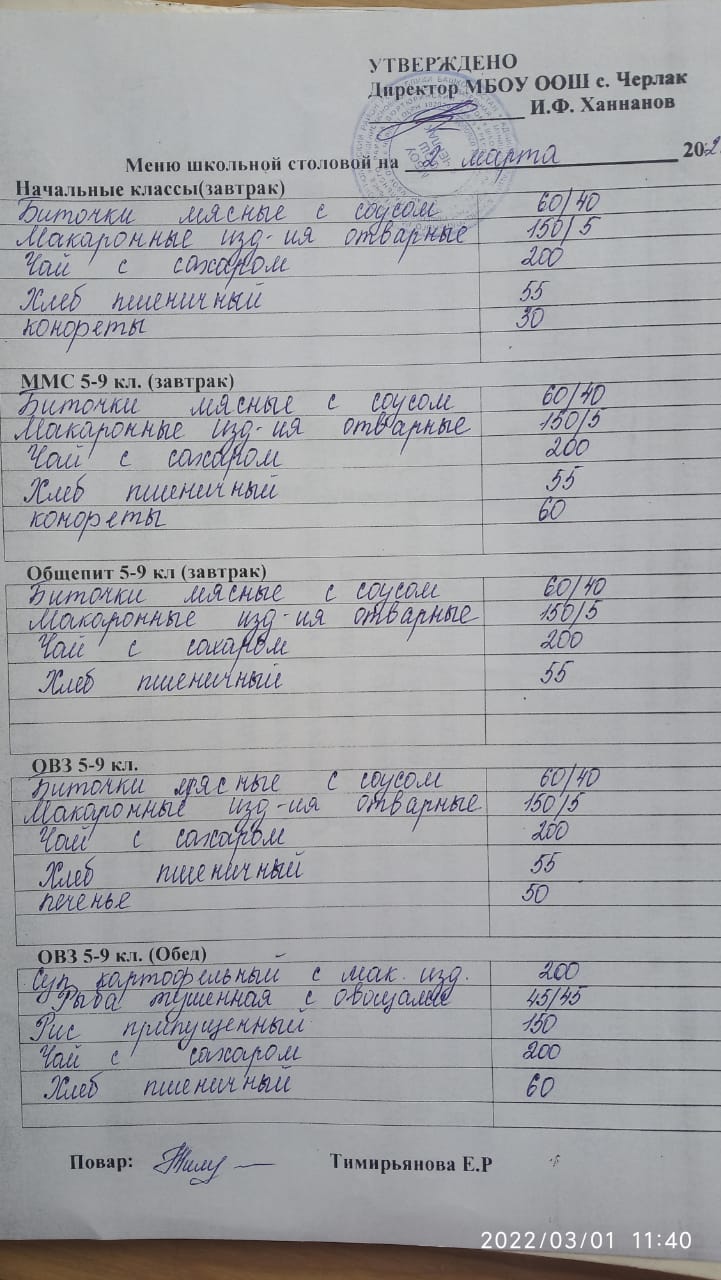 УТВЕРЖДЕНО
Директор МБОУ ООШ с. Черлак
И.Ф. Ханнанов
Меню школьной столовой на 2 марта 202
Начальные классы(завтрак)
Биточки мясные с соусом 60/40
Макаронные изд-ия отварные 150/5
Чай с сахаром 200
Хлеб пшеничный 55
конфеты 30
ММС 5-9 кл. (завтрак)
Биточки мясные с соусом 60/40
Макаронные изд-ия отварные 150/5
Чай с сахаром 200
Хлеб пшеничный 55
конфеты 60
Общепит 5-9 кл (завтрак)
Биточки мясные с соусом 60/40
Макаронные изд-ия отварные 150/5
Чай с сахаром 200
Хлеб пшеничный 55
ОВЗ 5-9 кл.
Биточки мясные с соусом 60/40
Макаронные изд-ия отварные 150/5
Чай с сахаром 200
Хлеб пшеничный 55
печенье 50
ОВЗ 5-9 кл. (Обед)
Суп картофельный с мак. изд. 200
Рыба тушенная с овощами 45/45
Рис припущенный 150
Чай с сахаром 200
Хлеб пшеничный 60
Повар: Тимирьянова Е.Р
2022/03/01 11:40